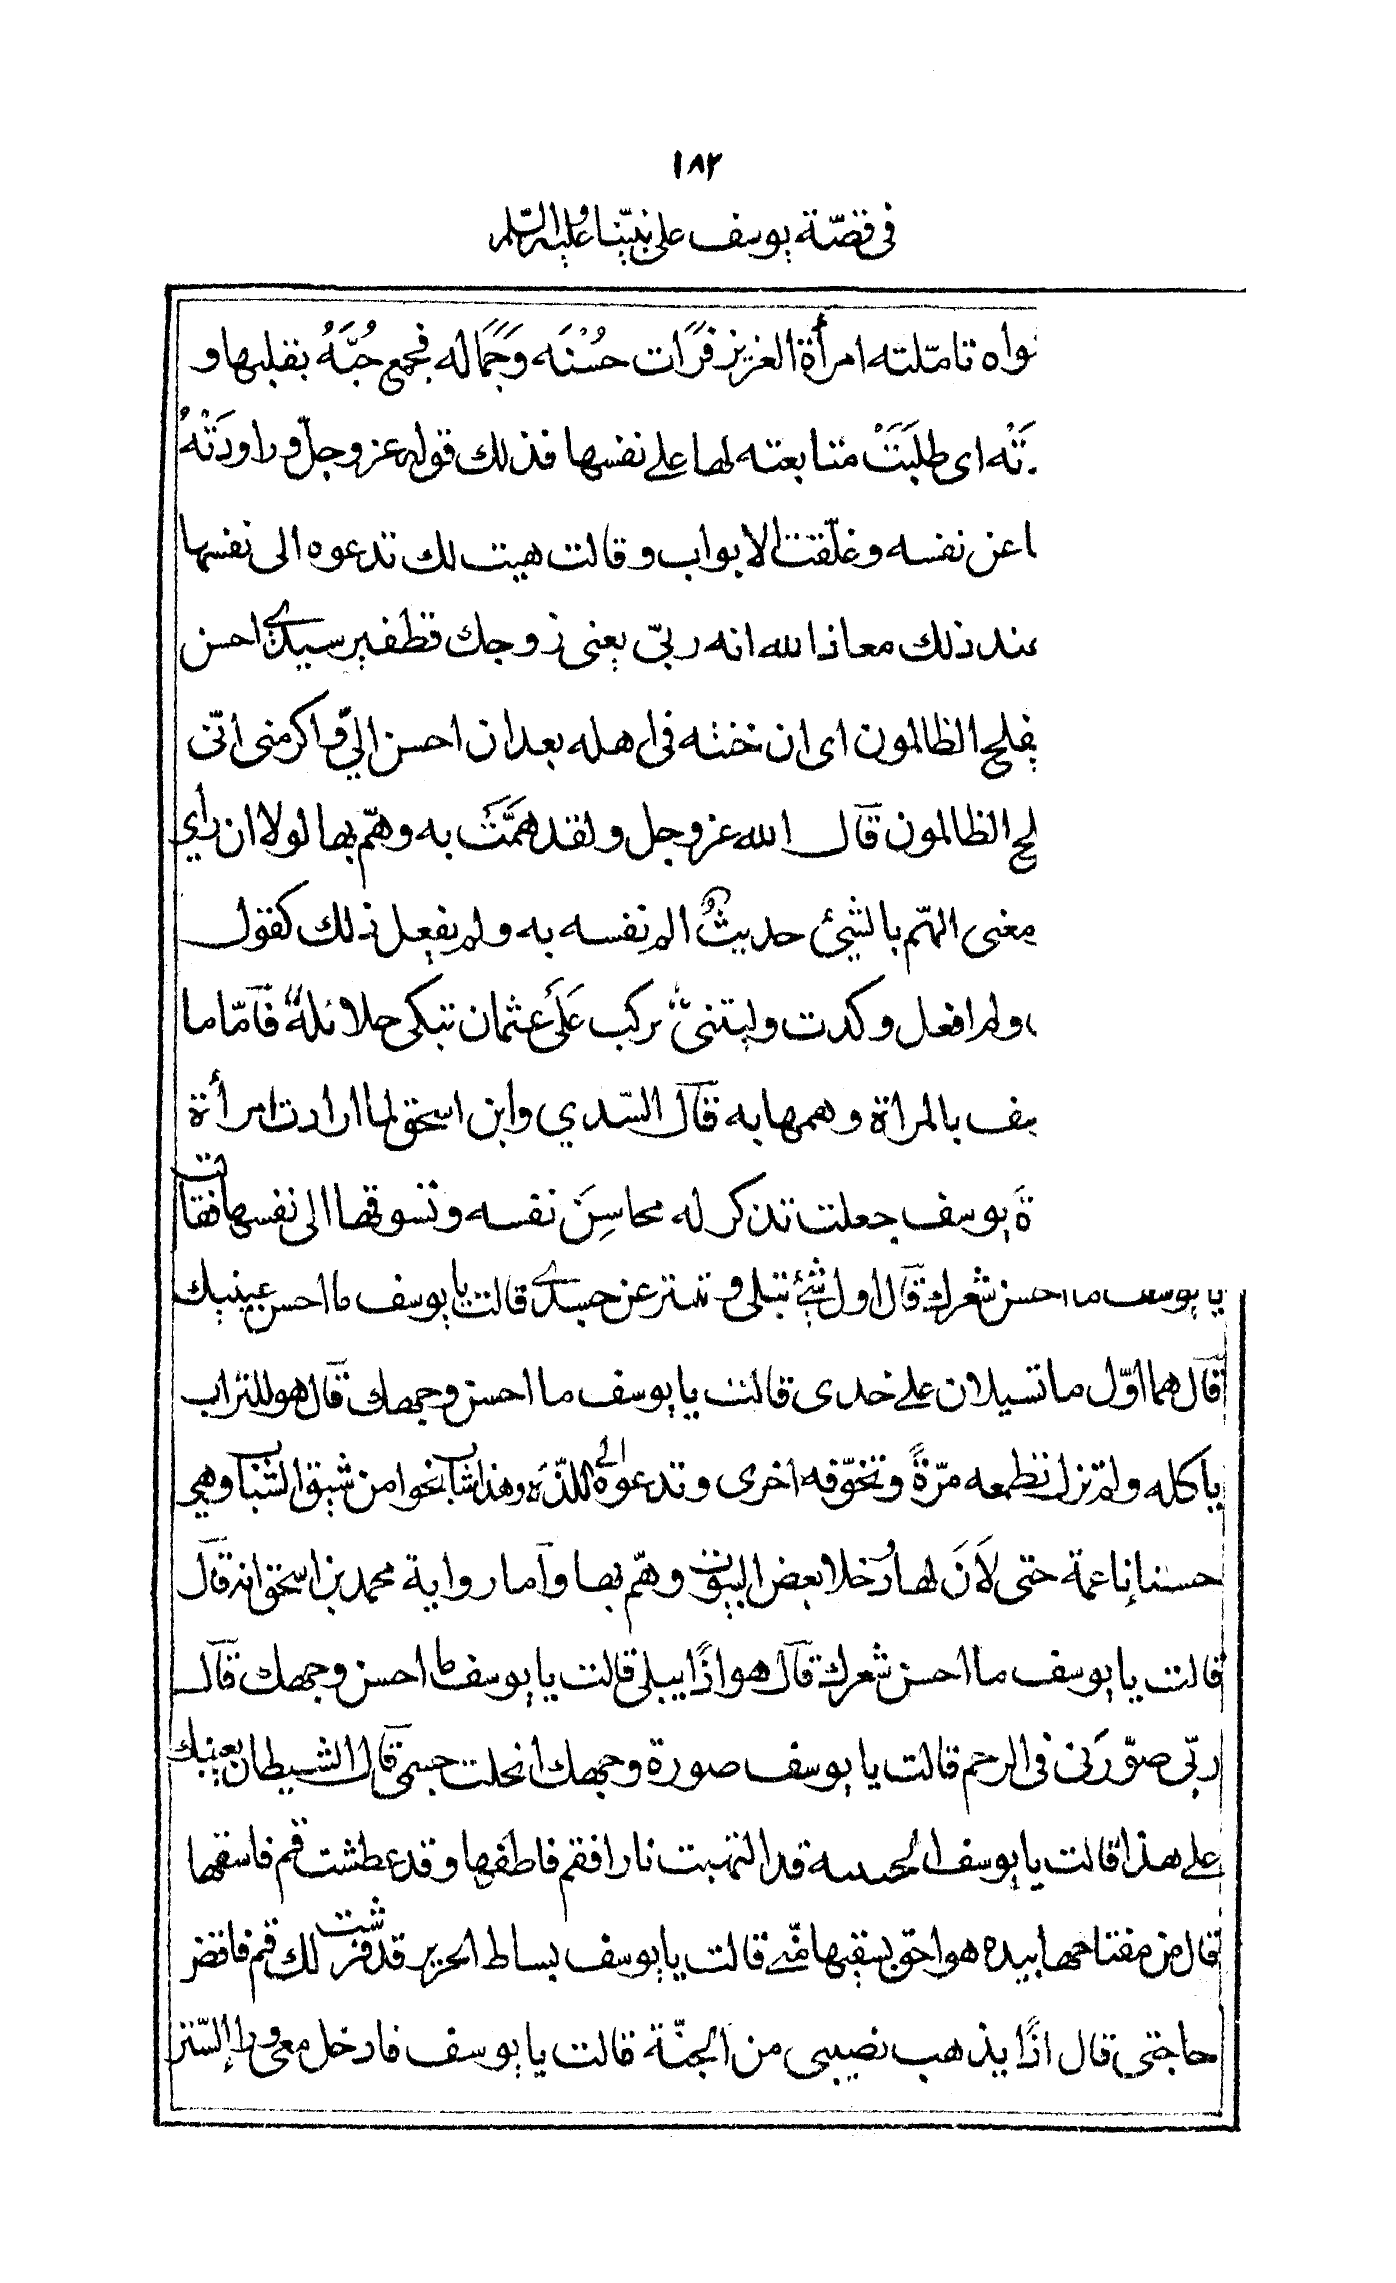 ١٨٢
فى قصّة يوسف على نبيّنا وعليه السّلم
تاملته امرأة العزيز فرَات حُسْنَه وَجَمَاله فجمع حُبَّهُ بقلبها و
اى طلبَتَتْ متابعته لها على نفسها فذلك قوله عز وجلّ و راودَتْهُ
عن نفسه وغلّقت الابواب وقالت هيت لك تدعوه الى نفسها
عند ذلك معاذ الله انه ربىّ يعنى زوجك قطفير سيدى احسن
يفلح الظالمون اى ان خنته فى اهله بعد ان احسن الىّ واكرمنى انّى
الظالمون قآل الله عز وجل ولقد همَّتَ به وهمّ بها لولا ان رأي
معنى الهمّ بالشيئ حديثُ المر نفسه به ولم يفعل ذلك كقول
ولم افعل وكدت وليتنى تركت عَلَى عثمان تبكى حلائلهُ فآمّا ما
بالمراة وهمها به قآل السّدي وابن اسحق لما ارادت امرأة
يوسف جعلت تذكر له محاسِنَ نفسه وتسوقها الى نفسها فقالت
يا يوسف ما احسن شعرك قآل اول شئ يبلى و تستر عن جسدى قالت يا يوسف ما احسن عينيك
قآل هما اوّل ما تسيلان على خدى قالت يا يوسف ما احسن وجهك قآل هو للتراب
ياكله ولم تزل تطمعه مرّةً وتخوّفه اخرى وتدعوه الى اللذّة وهذا شاب نحوا من شبق الشباب وهي
حسنا ناعمة حتى لَانَ لها ودخلا بعض البيوت وهمّ بها وآما رواية محمد بن اسحق انه قآل
قالت يا يوسف ما احسن شعرك قآل هو اذًا يبلى قالت يا يوسف ما احسن وجهك قآل
ربّى صوّرَنى فى الرحم قالت يا يوسف صورة وجهك انحلت جسمى قآل الشيطان يعينك
على هذا قالت يا يوسف قد التهبت نارا فقم فاطفها وقد عطشت قم فاسقها
قال من مفتاحها بيده هو احق بسقيها منّى قالت يا يوسف بساط الحرير قد فرشت لك قم فاقض
حاجتى قال اذًا يذهب نصيبى من الجنّة قالت يا يوسف فادخل معى ورا السّتر